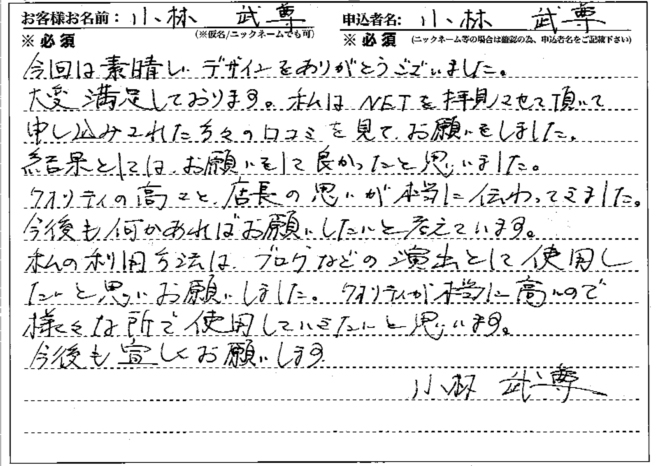 お客様お名前：小林 武尊 申込者名：小林 武尊
※必須 （※仮名/ニックネームでも可） ※必須 （ニックネーム等の場合は確認の為、申込者名をご記載下さい）
今回は素晴しいデザインをありがとうございました。
大変満足しております。私はNETを拝見させて頂いて
申し込みされた方々の口コミを見て、お願いをしました。
結果としては、お願いをして良かったと思いました。
クオリティの高さと、店長の思いが本当に伝わってきました。
今後も何かあればお願いしたいと考えています。
私の利用方法は、ブログなどの演出として使用し
たいと思いお願いしました。クオリティが本当に高いので
様々な所で使用していきたいと思います。
今後も宜しくお願いします
小林 武尊